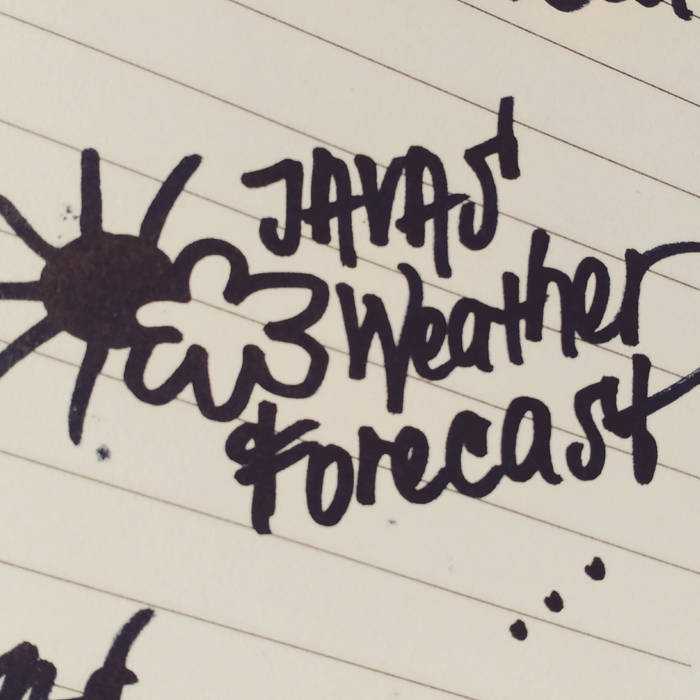 JAVAS
Weather
Forecast
...